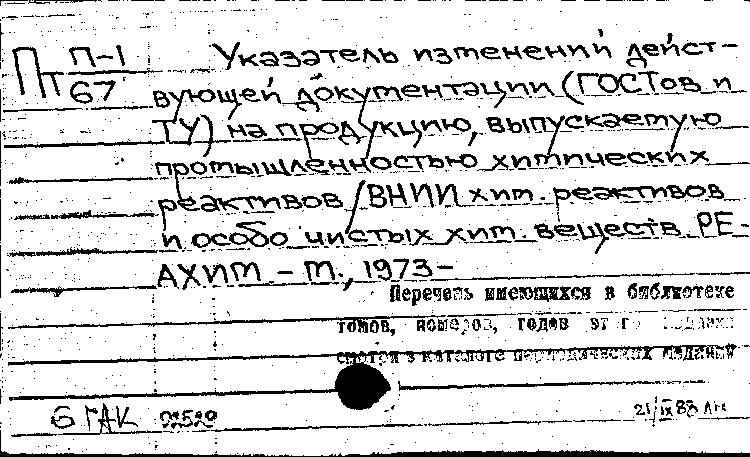 Пт П-1/67 Указатель изменений дейст-
вующей документации (ГОСТов и
ТУ) на продукцию, выпускаемую
промышленностью химических
реактивов /ВНИИ хим. реактивов
и особо чистых хим. веществ. РЕ-
АХИМ – М., 1973–
Перечень имеющихся в библиотеке
томов, номеров, годов этого издания
смотри в каталоге периодических изданий
6 ГАК 02529 21/IX 83